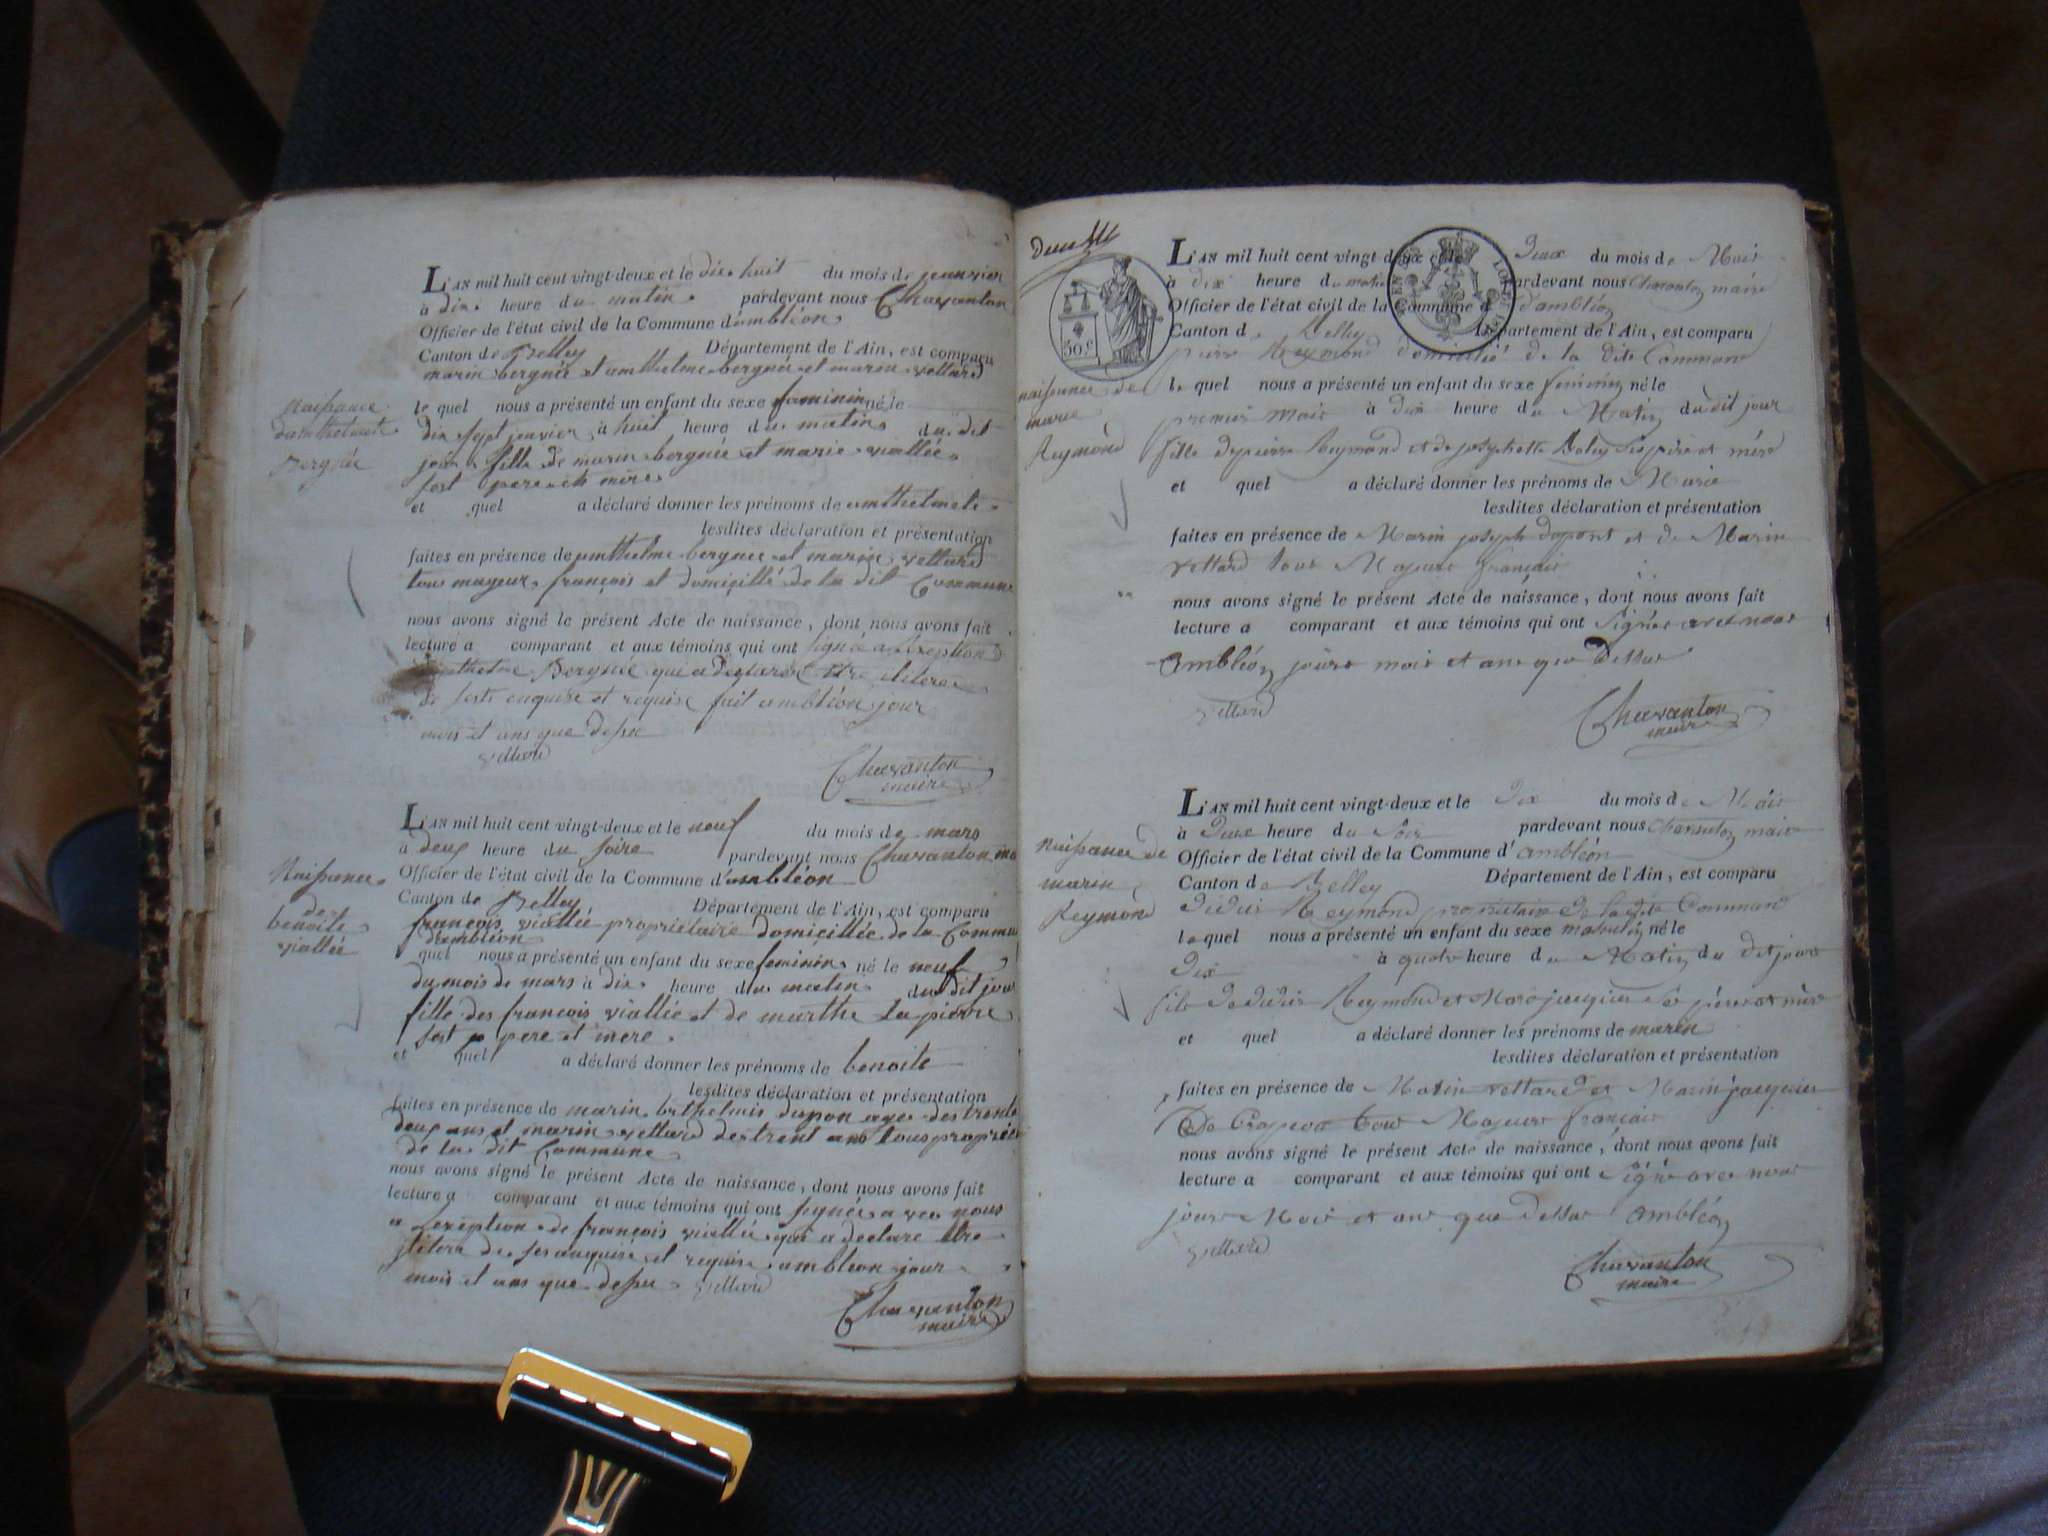 L'AN mil huit cent vingt-deux et le dix huit du mois de jeanvier
à dix heure du matin pardevant nous Chavanton
Officier de l'état civil de la Commune d'ambléon
Canton de Belley Département de l'Ain, est comparu
marin bergnié et amthelme bergnié et marin vettard
le quel nous a présenté un enfant du sexe faminin né le
dix sept janvier à huit heure du matin du dit
jour fille de marin bergnié et marie viallée
sest pere et mere
et quel a déclaré donner les prénoms de amthelmete
lesdites déclaration et présentation
faites en présence de amthelme bergnee et marin vettard
tous mayeur françois et domicillé de la dit Commune
nous avons signé le présent Acte de naissance, dont nous avons fait
lecture a comparant et aux témoins qui ont signé a
Bergnie qui a déclaré
de enquise et requise fait ambléon jour
mois et ans que dessu
vettard
Chavanton
maire
Naissance
damthelmete
Bergnié
L'AN mil huit cent vingt-deux et le neuf du mois de mars
à deux heure du soire pardevant nous Chavanton
Officier de l'état civil de la Commune d'ambléon
Canton de Belley Département de l'Ain, est comparu
françois viallée propriétaire domicillée de la Commu
d'ambléon
quel nous a présenté un enfant du sexe feminin né le neuf
du mois de mars à dix heure du matin du dit jour
fille des françois viallée et de marthe Lapierre
sest pere et mere
et quel a déclaré donner les prénoms de benoite
lesdites déclaration et présentation
faites en présence de marin dupon ages des trente
deux ans et marin vettard des trent ans tous
de la dit Commune
nous avons signé le présent Acte de naissance, dont nous avons fait
lecture a comparant et aux témoins qui ont signés avec nous
a exeption de françois viallée qui a declare
de ses anquiré et requise ambléon jour
mois et ans que dessu vettard
Chavanton
maire
Naissance
de
benoite
viallée
L'AN mil huit cent vingt-deux et le Deux du mois de Mais
à dix heure du matin pardevant nous Chavanton maire
Officier de l'état civil de la Commune d'ambléon
Canton de Belley Département de l'Ain, est comparu
pierre Reymond domicilié de la dite Commune
le quel nous a présenté un enfant du sexe feminin né le
premier Mais à dix heure du Matin du dit jour
fille de pierre Reymond et de josephette père et mère
et quel a déclaré donner les prénoms de Marie
lesdites déclaration et présentation
faites en présence de Marin joseph dupont et de Marin
vettard tous Majeurs français
nous avons signé le présent Acte de naissance, dont nous avons fait
lecture a comparant et aux témoins qui ont Signés avec nous
Ambléon jours mois et ans que Dessus
vettard
Chavanton
maire
50.c
naissance de
marie
Reymond
L'AN mil huit cent vingt-deux et le Dix du mois de Mais
à Deux heure du Soir pardevant nous Chavanton maire
Officier de l'état civil de la Commune d'ambléon
Canton de Belley Département de l'Ain, est comparu
Didier Reymond propriétaire de la dite Commune
le quel nous a présenté un enfant du sexe masculin né le
Dix à quatre heure du Matin du dit jour
fils de Didier Reymond et jacquier père et mère
et quel a déclaré donner les prénoms de marin
lesdites déclaration et présentation
faites en présence de Marin vettard et Marin jacquier
De tous Majeurs français
nous avons signé le présent Acte de naissance, dont nous avons fait
lecture a comparant et aux témoins qui ont Signé avec nous
jours Mois et ans que Dessus Ambléon
vettard
Chavanton
maire
Naissance de
marin
Reymond